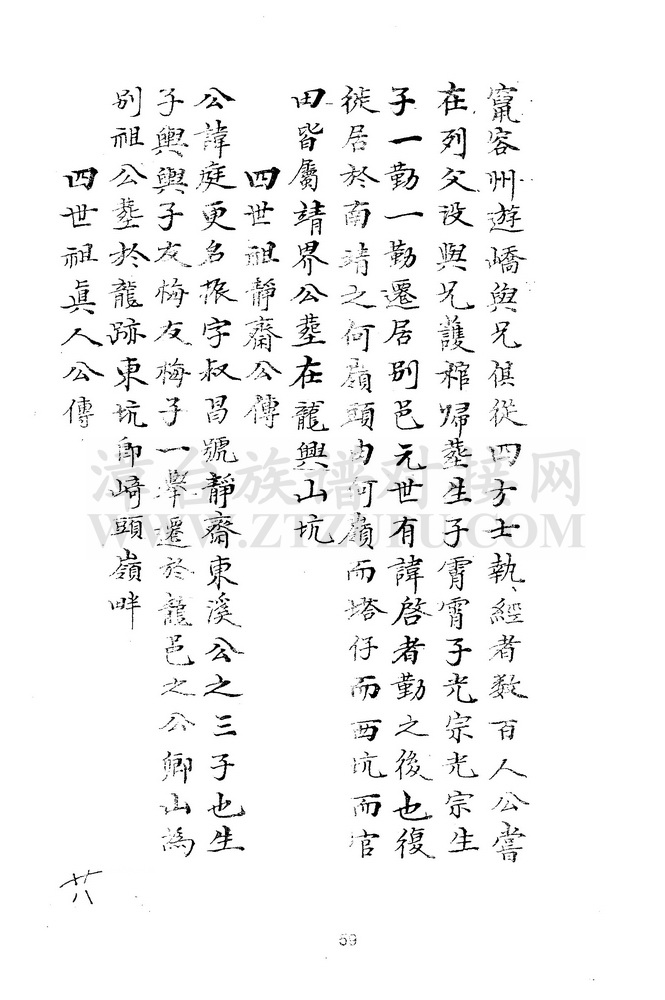 竄容州遊嶠與兄俱從四方士執經者数百人公嘗
在列父没與兄護棺歸葬生子霄霄子光宗光宗生
子一勤一勤遷居别邑元世有諱啓者勤之後也復
徙居於南靖之何嶺頭由何嶺而塔仔而西坑而官
田皆屬靖界公塟在龍興山坑
四世祖靜齋公傳
公諱庭更名振字叔昌號靜齋東溪公之三子也生
子興興子友梅友梅子一舉遷於龍邑之公卿山為
别祖公塟於龍跡東坑卽崎頭嶺畔
四世祖真人公傳
廿八
59
漳台族谱对接网
WWW.ZTZUPU.COM